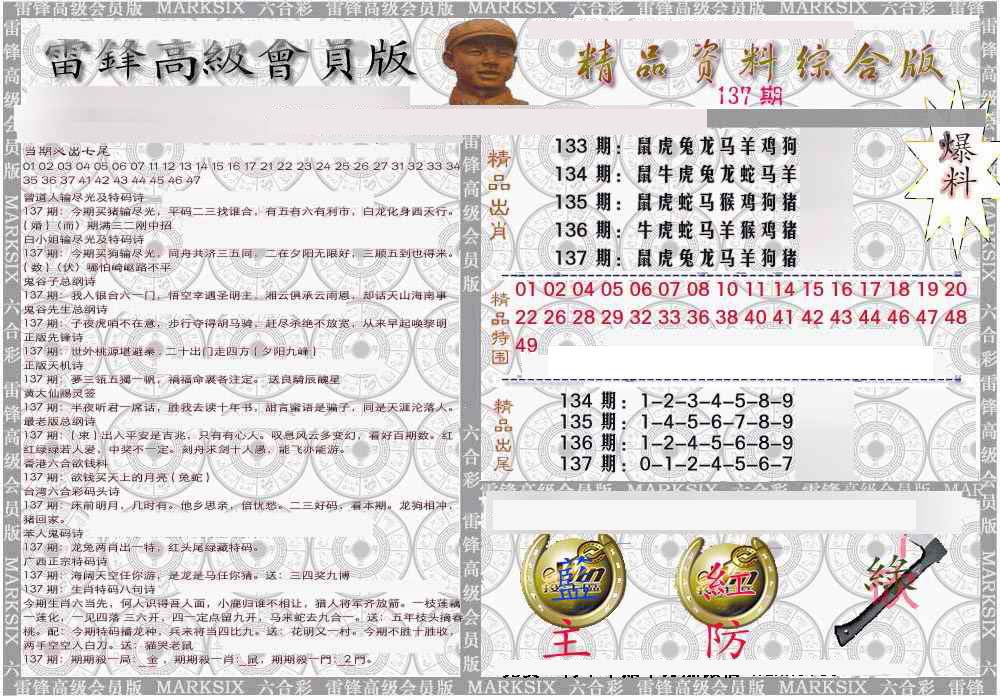 雷锋高级会员版 MARKSIX 六合彩 雷锋高级会员版 MARKSIX 六合彩 雷锋高级会员版 MARKSIX 六合彩
雷鋒高級會員版
精品资料综合版
137期
爆料
当期灭出七尾
01 02 03 04 05 06 07 11 12 13 14 15 16 17 21 22 23 24 25 26 27 31 32 33 34
35 36 37 41 42 43 44 45 46 47
曾道人输尽光及特码诗
137 期：今期买猪输尽光，平码二三找谁合，有五有六有利市，白龙化身西天行。
{ 婧 }〔而〕期满三二刚中招
白小姐输尽光及特码诗
137 期：今期买狗输尽光，同舟共济三五同，二在夕阳无限好，三顺五到也得来。
{ 数 }〔伏〕哪怕崎岖路不平
鬼谷子总纲诗
137 期：我入银台六一门，悟空幸遇圣明主，湘云俱承云南恩，却话天山海南事
鬼谷先生总纲诗
137 期：子夜虎哨不在意，步行夺得胡马骑，赶尽杀绝不放宽，从来早起唤黎明
正版先锋诗
137 期：世外桃源堪避秦，二十出门走四方 { 夕阳九峰 }
正版天机诗
137 期：夢三瓴五獨一帆，禍福命裏各注定。 送良騎辰醜星
黄大仙赐灵签
137 期：半夜听君一席话，胜我去读十年书，甜言蜜语是骗子，同是天涯沦落人。
最老版总纲诗
137 期：{ 来 } 出入平安是吉兆，只有有心人。叹息风云多变幻，看好百期数。红
红绿绿若人爱，中奖不一定。刻舟求剑十人愚，能飞亦能游。
香港六合欲钱料
137 期：欲钱买天上的月亮 { 兔蛇 }
台湾六合彩码头诗
137 期：床前明月，几时有。他乡思亲，倍忧愁。二三好码，看本期。龙狗相冲，
猪回家。
本人鬼码诗
137 期：龙兔两肖出一特，红头尾绿藏特码。
广西正宗特码诗
137 期：海阔天空任你游，是龙是马任你猜。送：三四奖九博
137 期：生肖特码八句诗
今期生肖六当先，何人识得吾人面，小鹿归谁不相让，猎人将军齐放箭。一枝莲藕
一莲化，一见四落 三六开，四一定点留九开，马来蛇去九合一。送：五年枝头摘春
桃。配：今期特码播龙种，兵来将当四比九。送：花明又一村。今期不胜十胜收，
两手空空入白刀。送：猫哭老鼠
137 期：期期殺一局：金，期期殺一肖：鼠，期期殺一門：2 門。
精品出肖
133 期：鼠虎兔龙马羊鸡狗
134 期：鼠牛虎兔龙蛇马羊
135 期：鼠虎蛇马猴鸡狗猪
136 期：牛虎蛇马羊猴鸡猪
137 期：鼠虎兔龙马羊狗猪
精品特围
01 02 04 05 06 07 08 10 11 14 15 16 17 18 19 20
22 26 28 29 32 33 36 38 40 41 42 43 44 46 47 48
49
精品出尾
134 期：1-2-3-4-5-8-9
135 期：1-4-5-6-7-8-9
136 期：1-2-4-5-6-8-9
137 期：0-1-2-4-5-6-7
藍 紅 綠
主 防
雷锋高级会员版 MARKSIX 六合彩 雷锋高级会员版 MARKSIX 六合彩 雷锋高级会员版 MARKSIX 六合彩